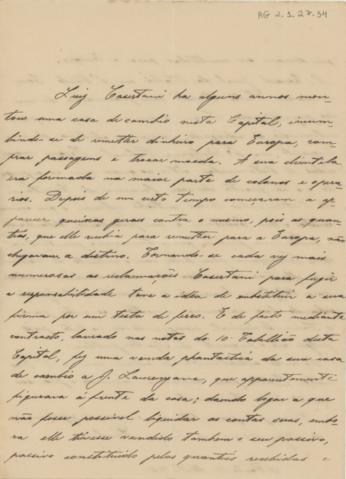 AG 2.1.27.34
Luiz Casertani ha alguns annos mon-
tou uma casa de cambio nesta Capital, incum-
bindo-se de remetter dinheiro para Europa, com-
prar passagens e trocar moeda. A sua clientela
era formada na maior parte de colonos e opera-
rios. Depois de um certo tempo começaram a ap-
parecer queixas geraes contra o mesmo, pois as quan-
tias, que elle recebia para remetter para a Europa, não
chegavam a destino. Tornando-se cada vez mais
numerosas as reclamações Casertani para fugir
a responsabilidade teve a idea de substituir a sua
firma por um testa de ferro. E de facto mediante
contracto, lavrado nas notas do 10 Tabellião desta
Capital, fez uma venda phantastica da sua casa
de cambio a J. Laurenzana, que apparentemente
figurava à frente da casa; dando logar a que
não fosse possivel liquidar as contas suas, embo-
ra elle tivesse vendido tambem o seu passivo,
passivo constituido pelas quantias recebidas e